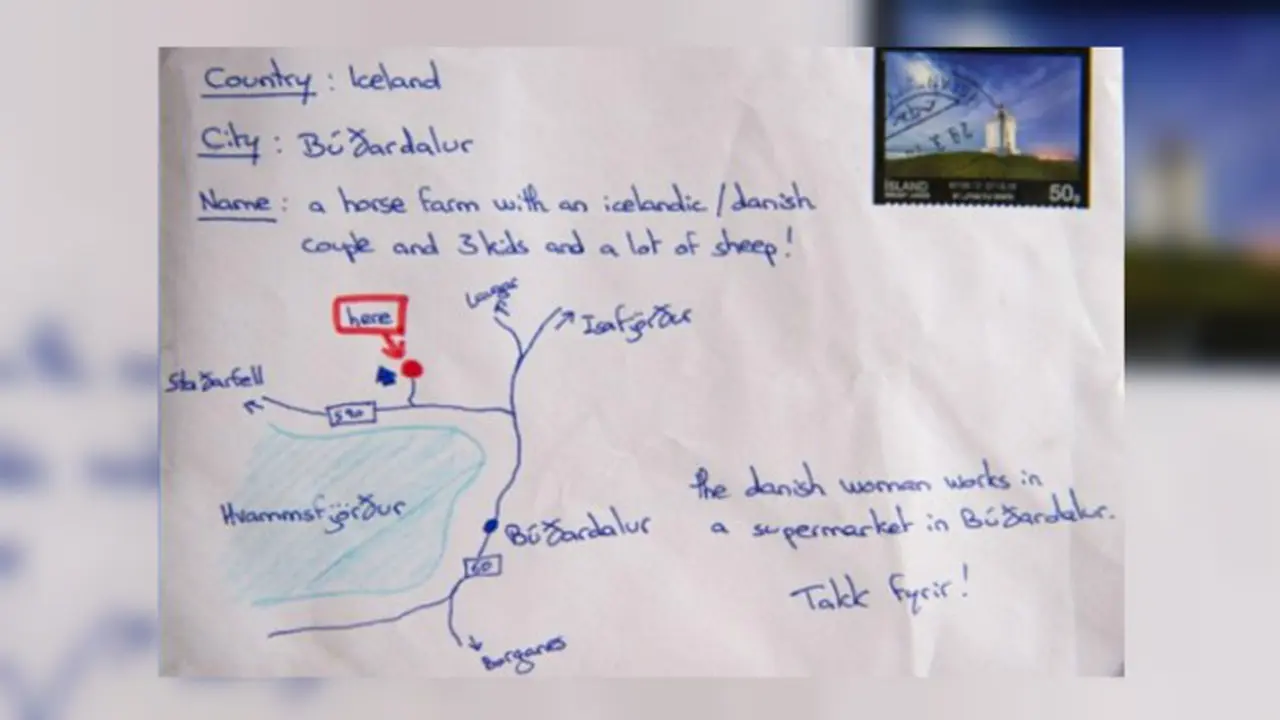 Country : Iceland
City : Búðardalur
Name : a horse farm with an icelandic / danish
couple and 3 kids and a lot of sheep!
here
Laugar
Isafjörður
Staðarfell
590
Hvammsfjörður
Búðardalur
60
Borganes
the danish woman works in
a supermarket in Búðardalur.
Takk fyrir!
ÍSLAND
50g